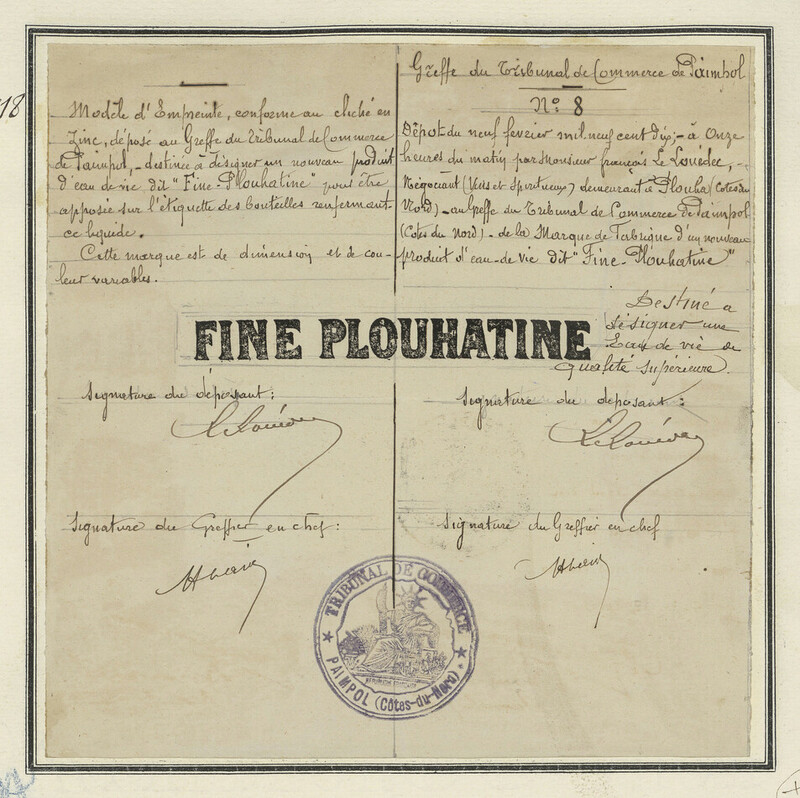 18
Modèle d'Empreinte, conforme au cliché en
Zinc, déposé au Greffe du Tribunal de Commerce
de Paimpol, - destinée à désigner un nouveau produit
d'eau de vie dit "Fine-Plouhatine" pour être
apposée sur l'étiquette des bouteilles renfermant
ce liquide.
Cette marque est de dimension et de cou-
leur variables.
Greffe du Tribunal de Commerce de Paimpol
No 8
Dépôt du neuf fevrier mil neuf cent dix; - à Onze
heures du matin par Monsieur françois Le Louédec, -
Négociant (Vins et Spiritueux) demeurant à Plouha (Côtes du
Nord) - au Greffe du Tribunal de Commerce de Paimpol
(Côtes du Nord) - de la Marque de Fabrique d'un nouveau
produit d'eau-de-vie dit "Fine-Plouhatine"
Destiné a
désigner une
Eau de vie de
qualité supérieure.
FINE PLOUHATINE
Signature du déposant:
Le Louédec
Signature du Greffier en chef:
Signature du déposant:
Le Louédec
Signature du Greffier en chef
TRIBUNAL DE COMMERCE
PAIMPOL (Côtes-du-Nord)